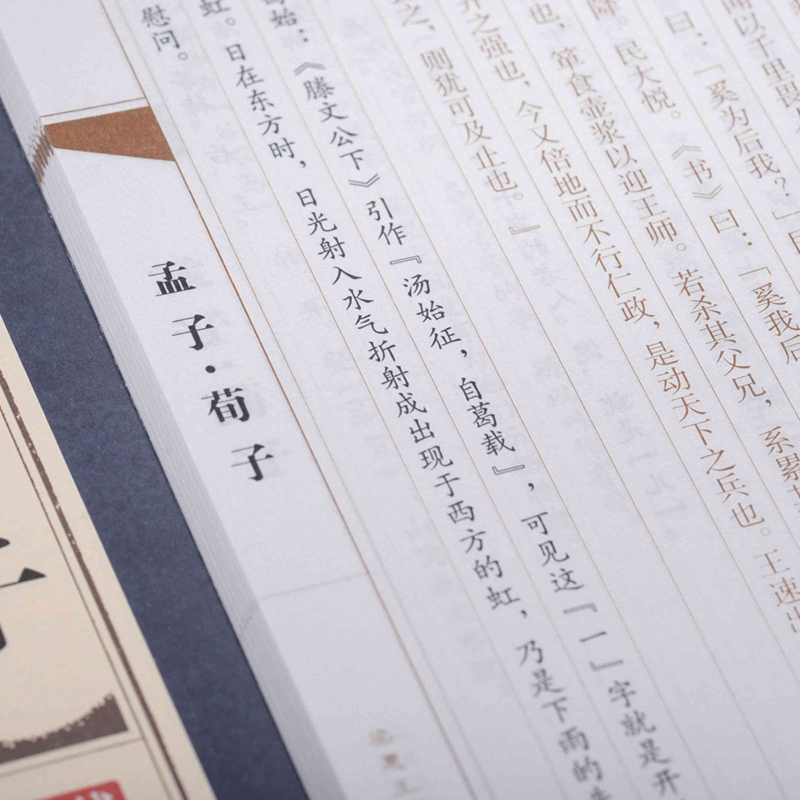 闻以千里畏
曰：「奚为后我？」
降。民大悦。《书》曰：「奚我后
也，箪食壶浆以迎王师。若杀其父兄，系累
之强也，今又倍地而不行仁政，是动天下之兵也。王速出
之，则犹可及止也。』
始：《滕文公下》引作『汤始征，自葛载』，可见这『一』字就是开
虹。日在东方时，日光射入水气折射成出现于西方的虹，乃是下雨的
慰问。
孟子·荀子